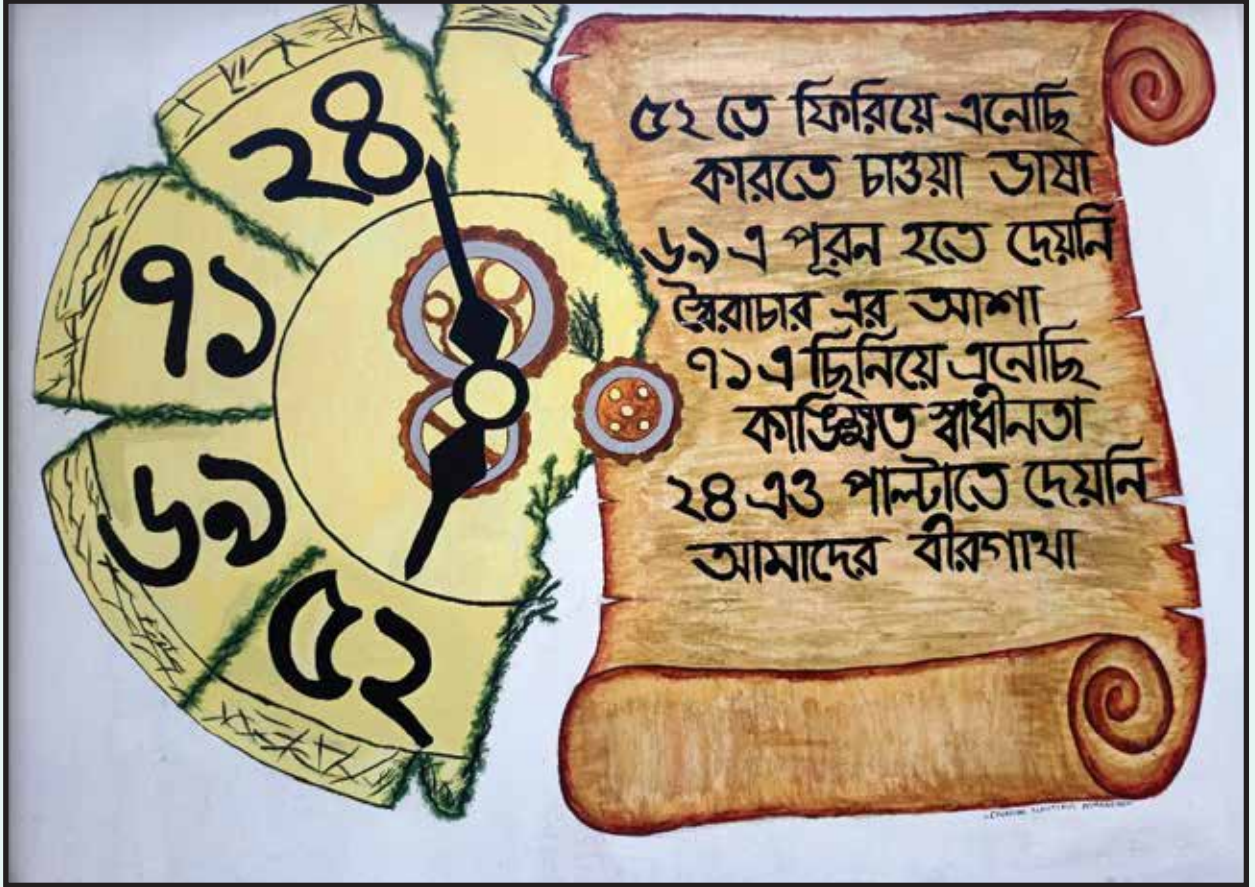 ২৪
৭১
৬৯
৫২
৫২ তে ফিরিয়ে এনেছি
কারতে চাওয়া ভাষা
৬৯ এ পূরন হতে দেয়নি
স্বৈরাচার এর আশা
৭১ এ ছিনিয়ে এনেছি
কাঙিক্ষত স্বাধীনতা
২৪ এও পাল্টাতে দেয়নি
আমাদের বীরগাথা